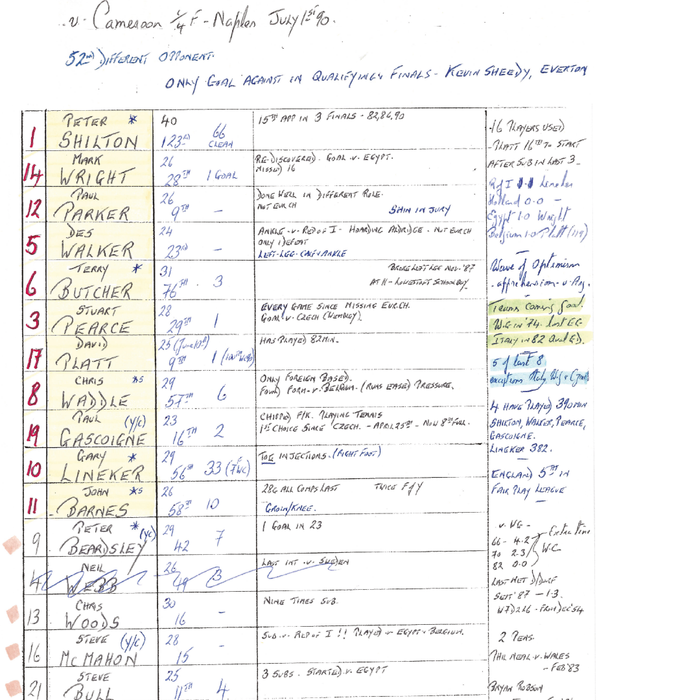 v. Cameroon 1/4 F - Naples July 1st 90.
52nd DIFFERENT OPPONENT.
ONLY GOAL AGAINST IN QUALIFYING & FINALS - KEVIN SHEEDY, EVERTON
1 PETER * SHILTON 40 123rd 66 CLEAN
15TH APP IN 3 FINALS - 82,86,90
14 MARK WRIGHT 26 28TH 1 GOAL
RE-DISCOVERED. GOAL V. EGYPT.
MISSED 16
12 PAUL PARKER 26 9TH -
DONE WELL IN DIFFERENT ROLE.
NOT EURCH SHIN INJURY
5 DES WALKER 24 23rd -
ANKLE - V. REP OF I - ALDRIDGE - NOT EURCH
ONLY 1 DEFEAT
LEFT LEG - CALF & ANKLE
6 TERRY * BUTCHER 31 76TH - 3
BROKE LEFT LEG NOV. '87
AT H - LOWESTOFT SCHOOLBOY.
3 STUART PEARCE 28 29TH 1
EVERY GAME SINCE MISSING EURCH.
GOAL V. CZECH (WEMBLEY).
17 DAVID PLATT 25 9TH 1
HAS PLAYED 82MIN.
8 CHRIS *S WADDLE 29 57TH 6
ONLY FOREIGN BASED.
FOUND FORM - V. BELGIUM. (RUNS EASED) PRESSURE.
19 PAUL (Y/C) GASCOIGNE 23 16TH 2
CHIPPED F/K. PLAYING TENNIS
1ST CHOICE SINCE CZECH. - APRIL 25TH - NOW 8TH FULL.
10 GARY * LINEKER 29 56TH 33 (7 WC)
TOE INJECTIONS. (RIGHT FOOT)
11 JOHN *S BARNES 26 58TH 10
286 ALL COMPS LAST TWICE F of Y
GROIN/KNEE.
9 PETER * (YC) BEARDSLEY 29 42 7
1 GOAL IN 23
4 NEIL WEBB 26 3
LAST INT. V. SWEDEN
13 CHRIS WOODS 30 16 -
NINE TIMES SUB.
16 STEVE (Y/C) McMAHON 28 15 -
SUB V. REP OF I !! PLAYED V EGYPT & BELGIUM.
21 STEVE BULL 25 11TH 4
3 SUBS. STARTED V. EGYPT
16 PLAYERS USED
- PLATT 16TH TO START
AFTER SUB IN LAST 3.
Rep I 1-1 Lineker
Holland 0-0 -
Egypt 1-0 Wright
Belgium 1-0 Platt (119)
Wave of Optimism
- apprehension - v.
Teams coming good.
W.G in 74
ITALY in 82
5 of last 8
exceptions Italy
4 HAVE PLAYED 390MIN
SHILTON, WALKER, PEARCE,
GASCOIGNE.
LINEKER 382.
ENGLAND 5TH IN
FAIR PLAY LEAGUE
v. WG - Extra time
66 - 4.2
70 2.3 W.C
82 0.0
LAST MET D/DORF
SEPT '87 - 1.3.
2 PENS.
PHIL NEAL V. WALES
- FEB '83
BRYAN ROBSON